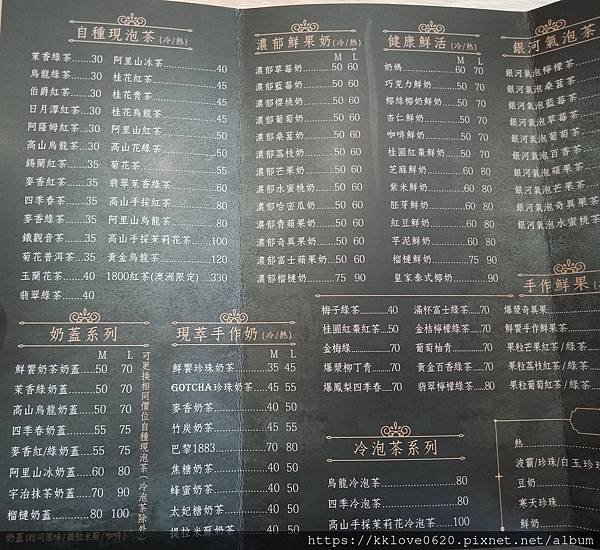 自種現泡茶(冷/熱)
茉香綠茶....30
烏龍綠茶....30
伯爵紅茶...30
日月潭紅茶...30
阿薩姆紅茶...30
高山烏龍茶...30
錫蘭紅茶....35
麥香紅茶.....35
四季春茶....35
麥香綠茶.....35
鐵觀音茶......35
菊花普洱茶...35
玉蘭花茶......40
翡翠綠茶......40
阿里山冰茶.......40
桂花紅茶.......45
桂花青茶.......45
桂花烏龍茶......45
阿里山紅茶......50
高山花綠茶......50
菊花茶.......55
翡翠茉香綠茶......60
高山手採紅茶......80
阿里山烏龍茶......80
高山手採茉莉花茶....100
黃金烏龍茶......120
1800紅茶(澳洲限定)...330
濃郁鮮果奶(冷/熱)
M L
濃郁草莓奶......50 60
濃郁藍莓奶......50 60
濃郁櫻桃奶......50 60
濃郁葡萄奶......50 60
濃郁桑葚奶......50 60
濃郁荔枝奶......50 60
濃郁芒果奶......50 60
濃郁水蜜桃奶....50 60
濃郁哈密瓜奶....50 60
濃郁青蘋果奶....50 60
濃郁奇異果奶....50 60
濃郁富士蘋果奶...50 60
濃郁榴槤奶......75 90
健康鮮活(冷/熱)
M L
奶媽..............60 70
巧克力鮮奶......50 70
椰絲椰奶鮮奶....50 70
杏仁鮮奶......50 70
咖啡鮮奶......50 70
桂圓紅棗鮮奶....50 70
芝麻鮮奶......60 80
紫米鮮奶......60 80
胚芽鮮奶......60 80
紅豆鮮奶......60 80
芋泥鮮奶......60 80
榴槤鮮奶......75 90
皇家泰式椰奶......90
銀河氣泡茶
銀河氣泡檸檬茶
銀河氣泡桑葚茶
銀河氣泡藍莓茶
銀河氣泡草莓茶
銀河氣泡葡萄茶
銀河氣泡百香茶
銀河氣泡蘋果茶
銀河氣泡芒果茶
銀河氣泡奇異果茶
銀河氣泡水蜜桃茶
奶蓋系列
M L
鮮饗奶茶奶蓋......50 70
茉香綠奶蓋......50 70
高山烏龍奶蓋......50 70
四季春奶蓋......55 75
麥香紅/綠奶蓋....55 75
阿里山冰奶蓋......60 80
宇治抹茶奶蓋......70 90
榴槤奶蓋......80 100
奶蓋(起司原味/提拉米蘇/咖啡)
可更換相同價位自種現泡茶(冷泡茶除外)
現萃手作奶(冷/熱)
M L
鮮饗珍珠奶茶......35 45
GOTCHA珍珠奶茶....45 55
麥香奶茶......40 50
竹炭奶茶......45 55
巴黎1883......70 80
焦糖奶茶......40 50
蜂蜜奶茶......40 50
太妃糖奶茶......40 50
提拉米蘇奶茶......40 50
梅子綠茶........40
桂圓紅棗紅茶....50
金梅綠........70
爆漿柳丁青......70
爆鳳梨四季春...70
滿杯富士綠茶...70
金桔檸檬綠茶....70
葡萄柚青......70
黃金百香綠茶....70
翡翠檸檬綠茶....80
手作鮮果(冷
爆漿奇異果
鮮饗手作鮮果茶
果粒芒果紅茶/綠茶
果粒荔枝紅茶/綠茶
果粒葡萄紅茶/綠茶
冷泡茶系列
烏龍冷泡茶..........80
四季冷泡茶..........80
高山手採茉莉花冷泡茶....100
熱
波霸/珍珠/白玉珍珠
豆奶
寒天珍珠
鮮奶
https://kklove0620.pixnet.net/album